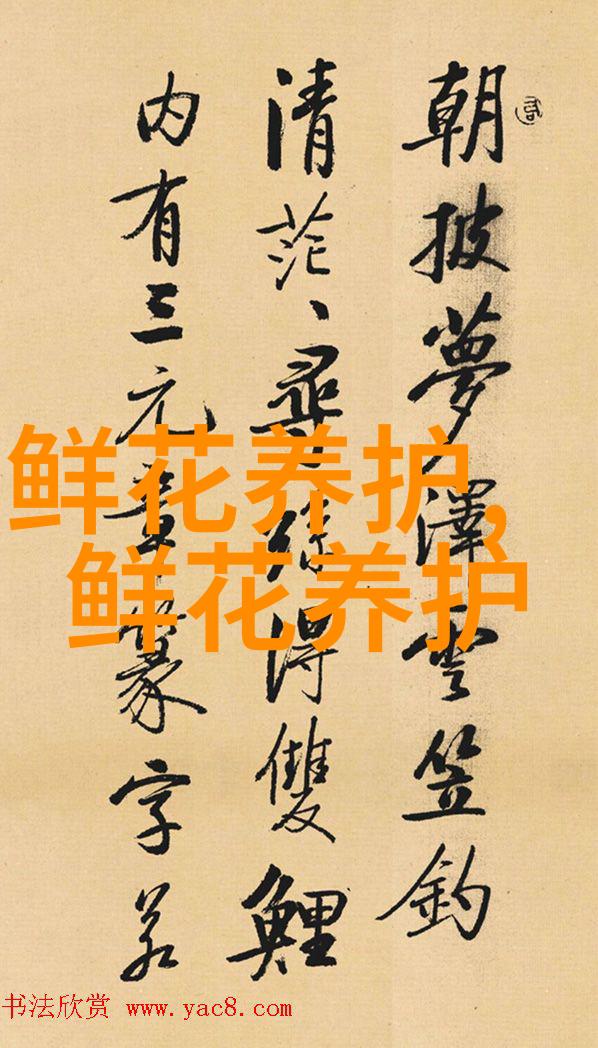 朝披夢澤雲笠釣
清茫、尋絲得雙鯉
内有三元章篆字若
鲜花养护,
鲜花养护
书法欣赏 www.yac8.com